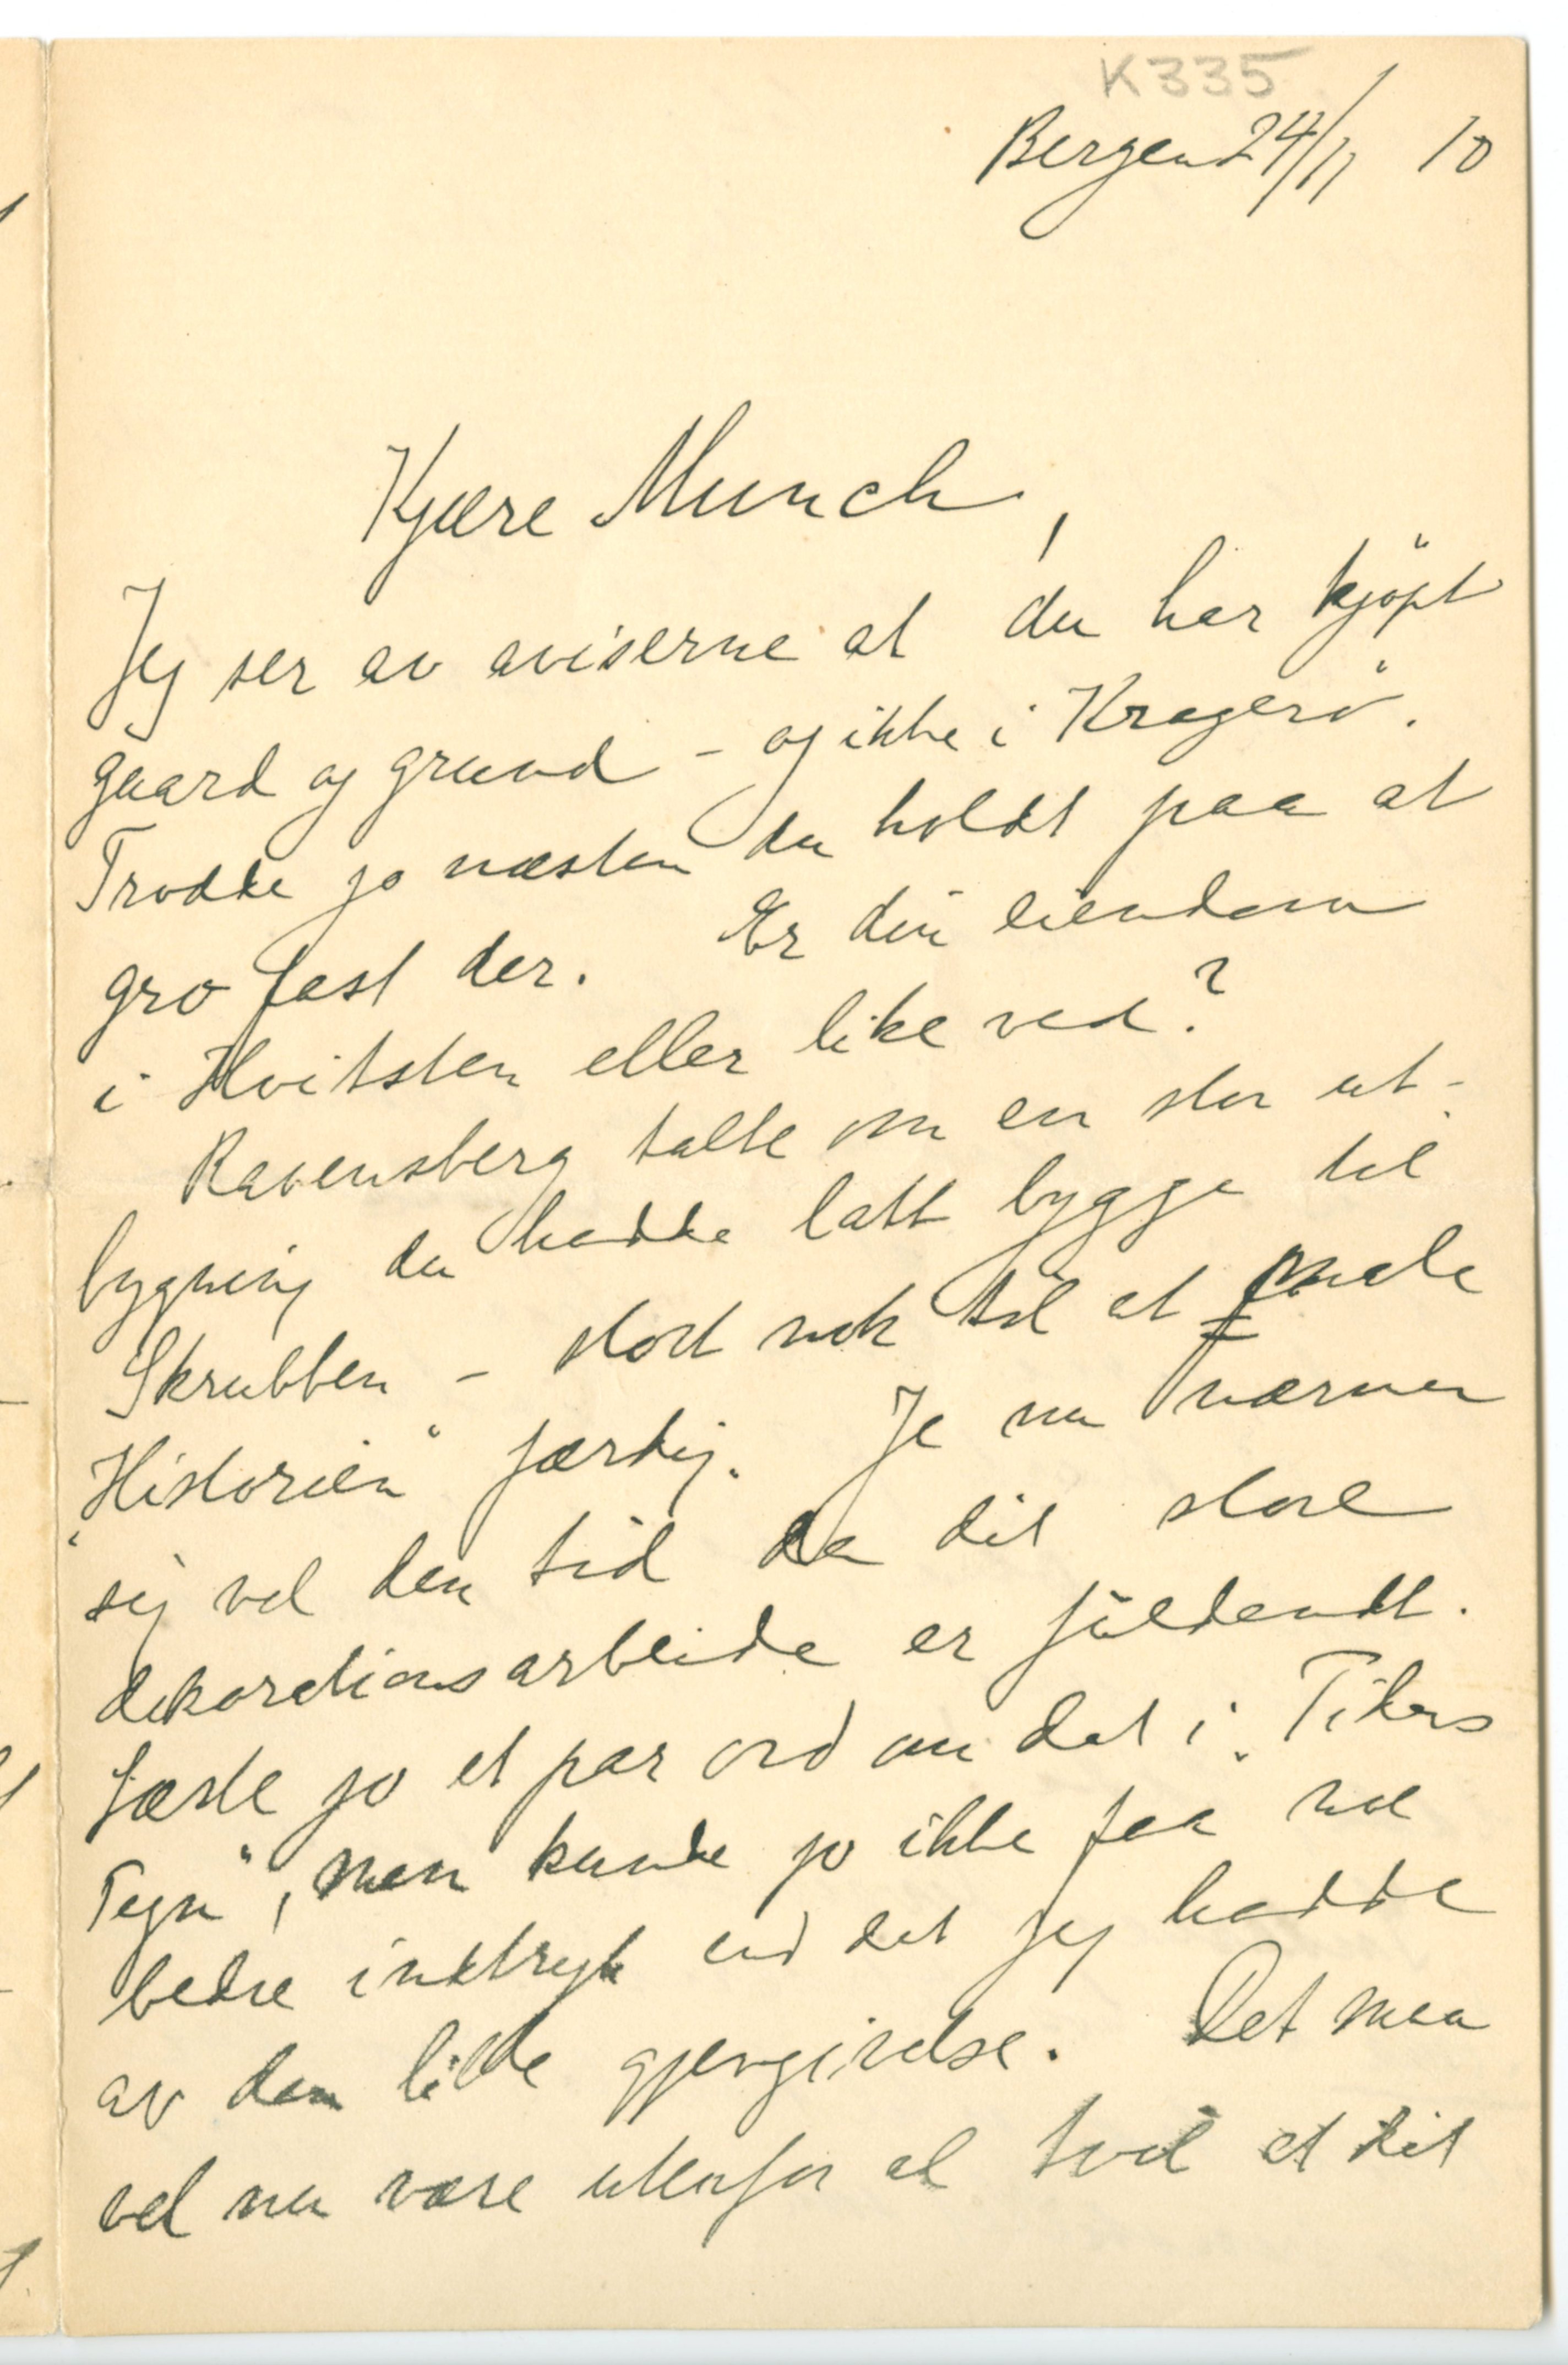 K335
Bergen 24/11 10
Kjære Munch,
Jeg ser av aviserne at du har kjöpt
gaard og grund – og ikke i Kragerö.
Trodde jo næsten du holdt paa at
gro fast der. Er din eiendom
i Hvitsten eller like ved?
Ravensberg talte om en stor ut-
bygning du hadde latt bygge til
Skrubben – stort nok til at male
„Historien“ færdig. Je nu nærmer
sig vel den tid da dit store
dekorationsarbeide er fuldendt.
Læste jo et par ord om det i „Tidens
Tegn“, men kunde jo ikke faa
bedre indtryk end det jeg hadde
av den lille gjengivelse. Det maa
vel nu være utenfor al tvil at dit